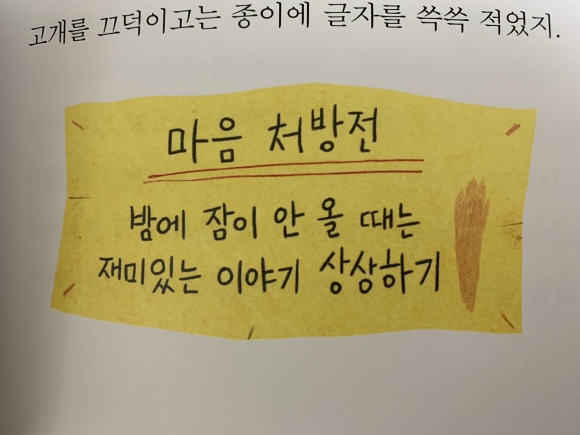 고개를 끄덕이고는 종이에 글자를 쓱쓱 적었지.
마음 처방전
밤에 잠이 안 올 때는
재미있는 이야기 상상하기